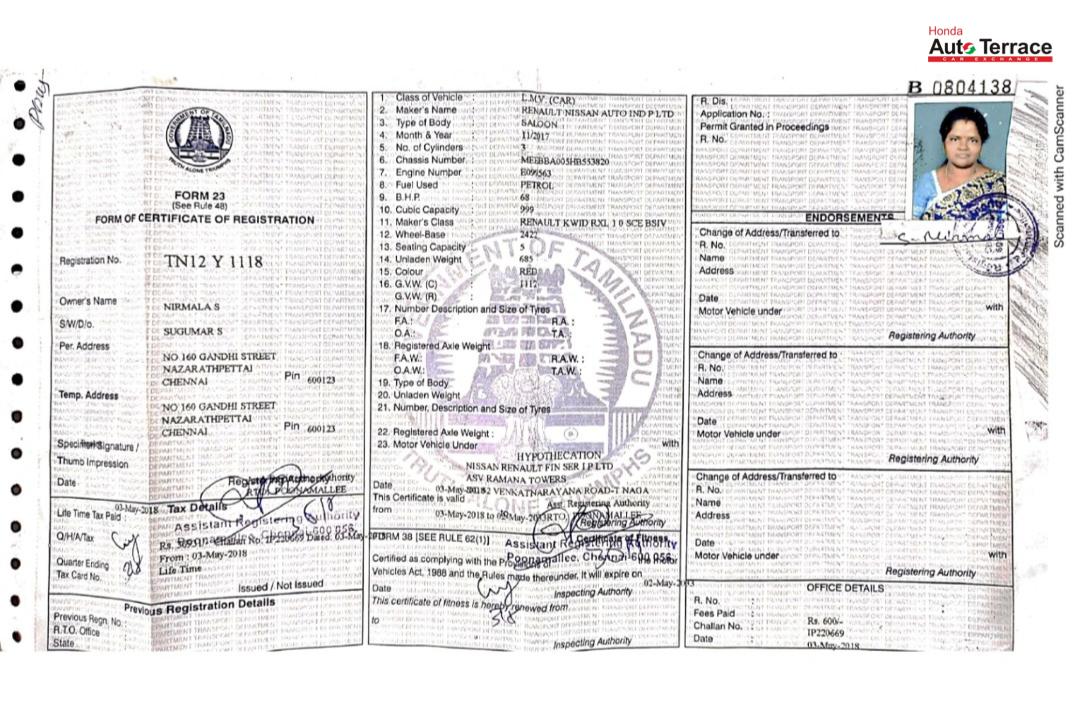 Honda
Auto Terrace
CAR EXCHANGE
B 0804138
Scanned with CamScanner
GOVERNMENT OF TAMILNADU
TRUTH ALONE TRIUMPHS
FORM 23
(See Rule 48)
FORM OF CERTIFICATE OF REGISTRATION
Registration No. TN12 Y 1118
Owner's Name NIRMALA S
S/W/D/o. SUGUMAR S
Per. Address NO 160 GANDHI STREET
NAZARATHPETTAI
CHENNAI Pin 600123
Temp. Address NO 160 GANDHI STREET
NAZARATHPETTAI
CHENNAI Pin 600123
Specimen Signature /
Thumb Impression
Registering Authority
Date POONAMALLEE
03-May-2018 Tax Details
Life Time Tax Paid
Assistant Registering Authority
Q/H/A/Tax
From : 03-May-2018
Quarter Ending Life Time
Tax Card No.
Issued / Not Issued
Previous Registration Details
Previous Regn. No. :
R.T.O. Office
State
1. Class of Vehicle : L.M.V. (CAR)
2. Maker's Name : RENAULT NISSAN AUTO IND P LTD
3. Type of Body : SALOON
4. Month & Year : 11/2017
5. No. of Cylinders : 3
6. Chassis Number. :
7. Engine Number :
8. Fuel Used : PETROL
9. B.H.P. : 68
10. Cubic Capacity : 999
11. Maker's Class : RENAULT KWID RXL 1 0 SCE BSIV
12. Wheel-Base : 2422
13. Seating Capacity : 5
14. Unladen Weight : 685
15. Colour : RED
16. G.V.W. (C) :
G.V.W. (R) :
17. Number Description and Size of Tyres
F.A.: R.A.:
O.A.: T.A.:
18. Registered Axle Weight
F.A.W.: R.A.W. :
O.A.W.: T.A.W. :
19. Type of Body
20. Unladen Weight
21. Number, Description and Size of Tyres
22. Registered Axle Weight :
23. Motor Vehicle Under with
HYPOTHECATION
NISSAN RENAULT FIN SER I P LTD
ASV RAMANA TOWERS
Date 03-May-2018 2 VENKATNARAYANA ROAD-T NAGA
This Certificate is valid Asst. Registering Authority
from 03-May-2018 to
Registering Authority
FORM 38 [SEE RULE 62(1)] Certificate of Fitness
Assistant Registering Authority
Poonamallee, Chennai 600 056.
Certified as complying with the
Vehicles Act, 1988 and the Rules made thereunder. It will expire on
Date Inspecting Authority
This certificate of fitness is hereby renewed from
to
Inspecting Authority
R. Dis. :
Application No. :
Permit Granted in Proceedings
R. No.
ENDORSEMENTS
S. Nirmala
Change of Address/Transferred to
R. No.
Name
Address
Date
Motor Vehicle under with
Registering Authority
Change of Address/Transferred to :
R. No.
Name
Address
Date
Motor Vehicle under with
Registering Authority
Change of Address/Transferred to
R. No.
Name
Address
Date
Motor Vehicle under with
Registering Authority
OFFICE DETAILS
R. No. :
Fees Paid : Rs. 600/-
Challan No. : IP220669
Date : 03-May-2018